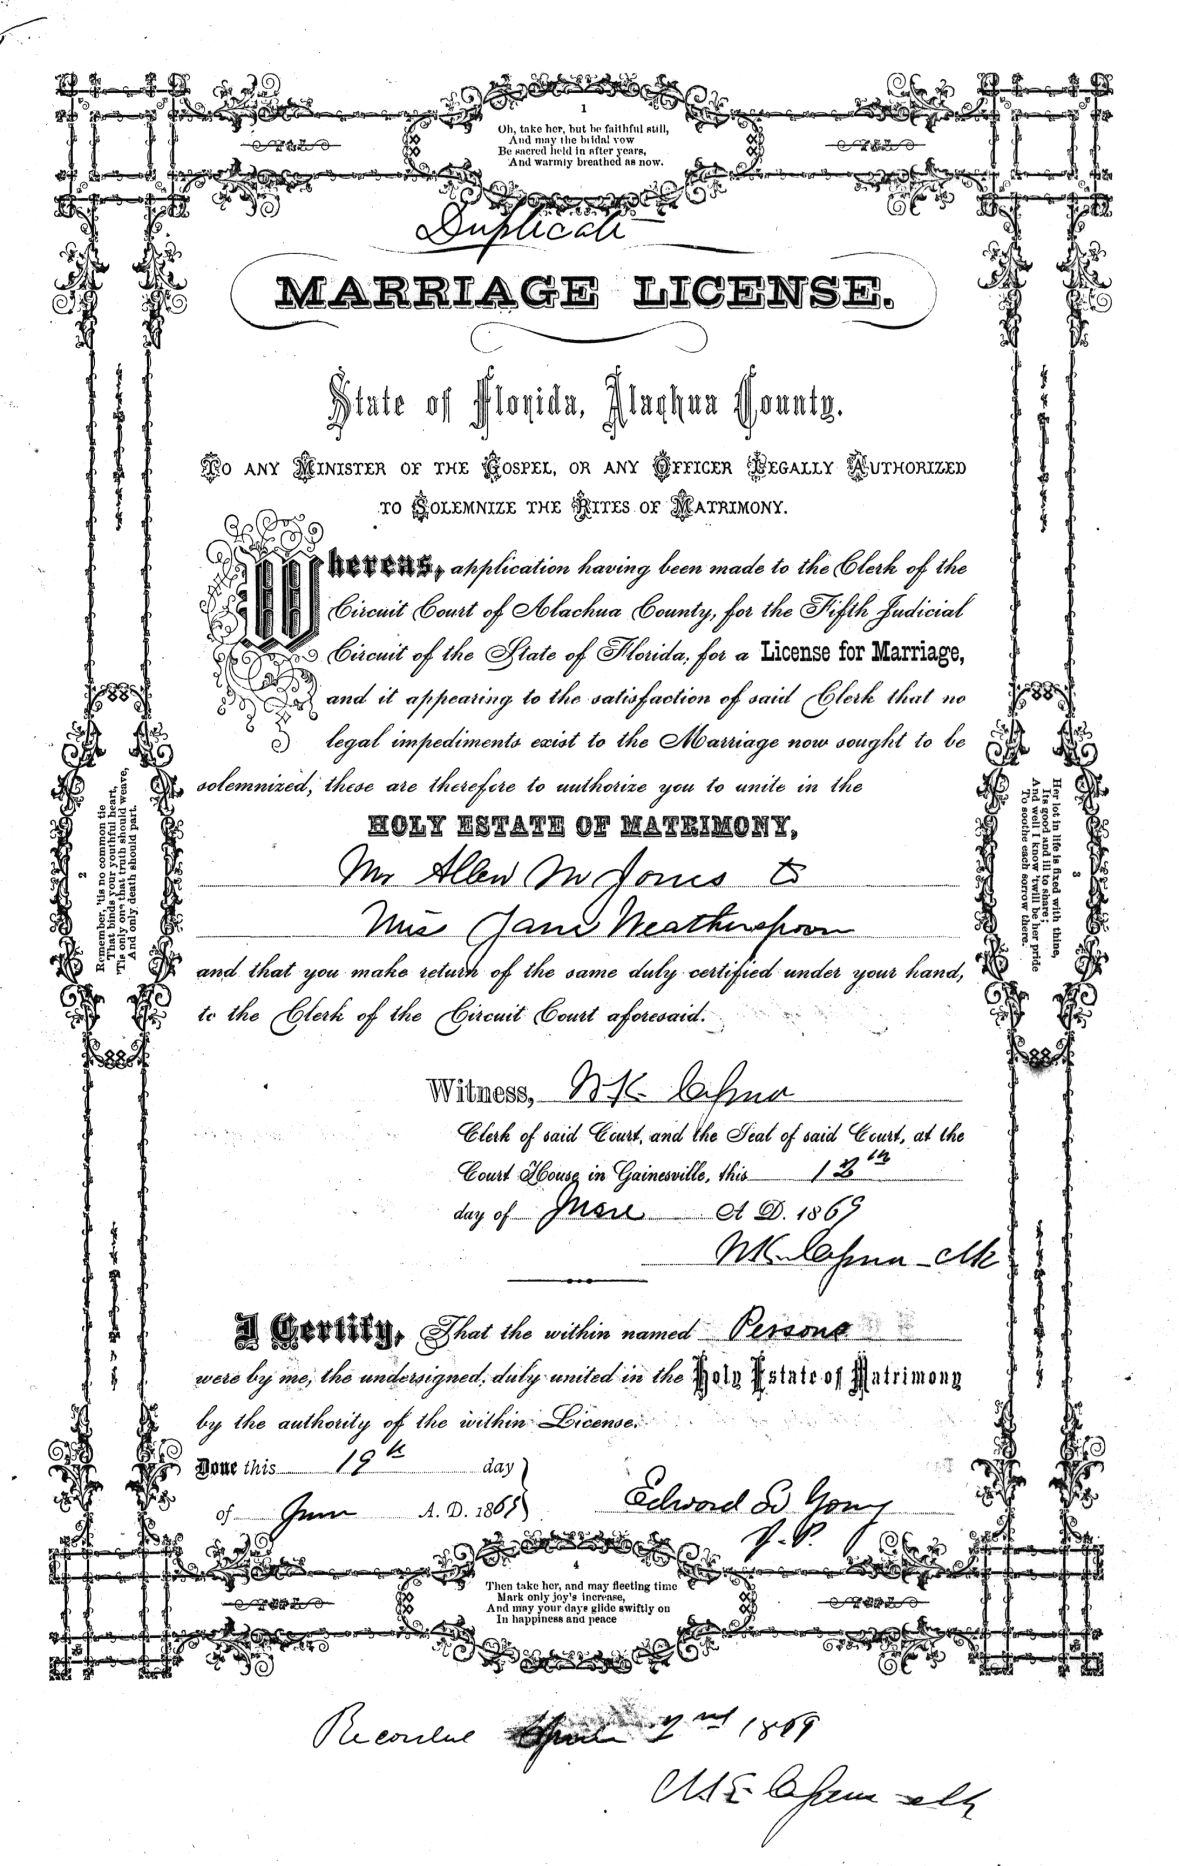 1
Oh, take her, but be faithful still,
And may the bridal vow
Be sacred held in after years,
And warmly breathed as now.
Duplicate
MARRIAGE LICENSE.
State of Florida, Alachua County.
TO ANY MINISTER OF THE GOSPEL, OR ANY OFFICER LEGALLY AUTHORIZED
TO SOLEMNIZE THE RITES OF MATRIMONY.
Whereas, application having been made to the Clerk of the
Circuit Court of Alachua County, for the Fifth Judicial
Circuit of the State of Florida, for a License for Marriage,
and it appearing to the satisfaction of said Clerk that no
legal impediments exist to the Marriage now sought to be
solemnized; these are therefore to authorize you to unite in the
HOLY ESTATE OF MATRIMONY,
Mr Allen M Jones to
Miss Jane Weatherspoon
and that you make return of the same duly certified under your hand,
to the Clerk of the Circuit Court aforesaid.
2
Remember, 'tis no common tie
That binds your youthful heart,
'Tis only one that truth should weave,
And only death should part.
3
Her lot in life is fixed with thine,
Its good and ill to share;
And well I know 'twill be her pride
To soothe each sorrow there.
Witness,
Clerk of said Court, and the Seal of said Court, at the
Court House in Gainesville, this 12th
day of June A. D. 1869
Clk
I Certify, That the within named Persons
were by me, the undersigned, duly united in the Holy Estate of Matrimony
by the authority of the within License.
Done this 19th day
of June A. D. 1869
Edward
J. P.
4
Then take her, and may fleeting time
Mark only joy's increase,
And may your days glide swiftly on
In happiness and peace
Recorded 2nd 1869